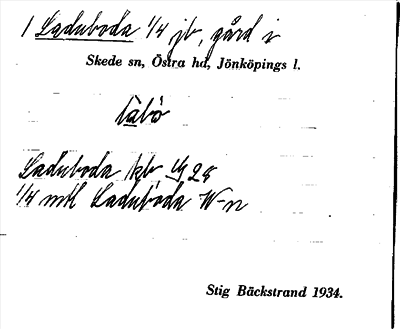 1 Laduboda 1/4 jb, gård i
Skede sn, Östra hd, Jönköpings l.
låbò
Laduboda kb, 28
1/4 mtl Laduboda W-n
Stig Bäckstrand 1934.